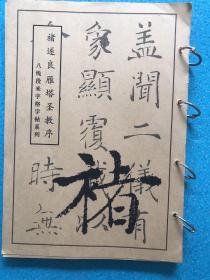 盖聞二儀有
象顯覆
時無
褚
褚遂良雁塔圣教序
米字格字帖系列